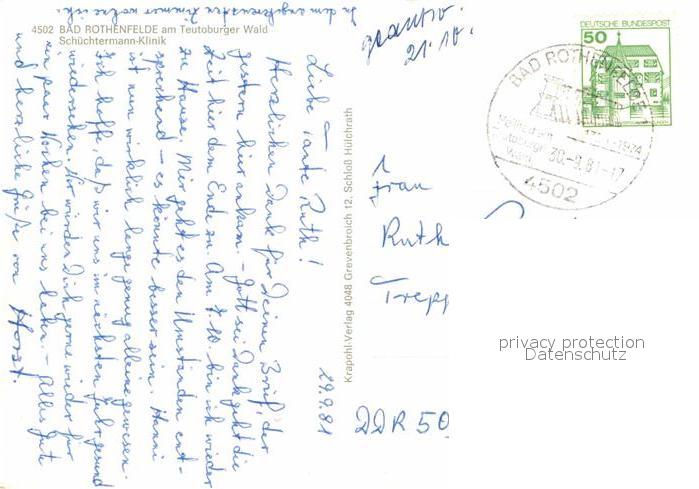 4502 BAD ROTHENFELDE am Teutoburger Wald
Schüchtermann-Klinik
In dem angekreuzten Zimmer wohne ich.
29.9.81
Liebe Tante Ruth!
Herzlichen Dank für Deinen Brief, der
gestern hier ankam. - Gott sei Dank geht die
Zeit hier dem Ende zu. Am 7.10 bin ich wieder
zu Hause. Mir geht es den Umständen ent-
sprechend - es könnte besser sein. Hanni
ist nun wirklich lange genug alleine gewesen.
Ich hoffe, daß wir uns im nächsten Jahr gesund
wiedersehen. Wir würden Dich gerne wieder für
ein paar Wochen bei uns haben. - Alles Gute
und herzliche Grüße von Horst.
Krapohl-Verlag 4048 Grevenbroich 12, Schloß Hülchrath
21.10.
DEUTSCHE BUNDESPOST
50
BAD ROTHENFELDE
30.-9.81-17
4502
Frau
Ruth
Trepp
DDR 50
privacy protection
Datenschutz